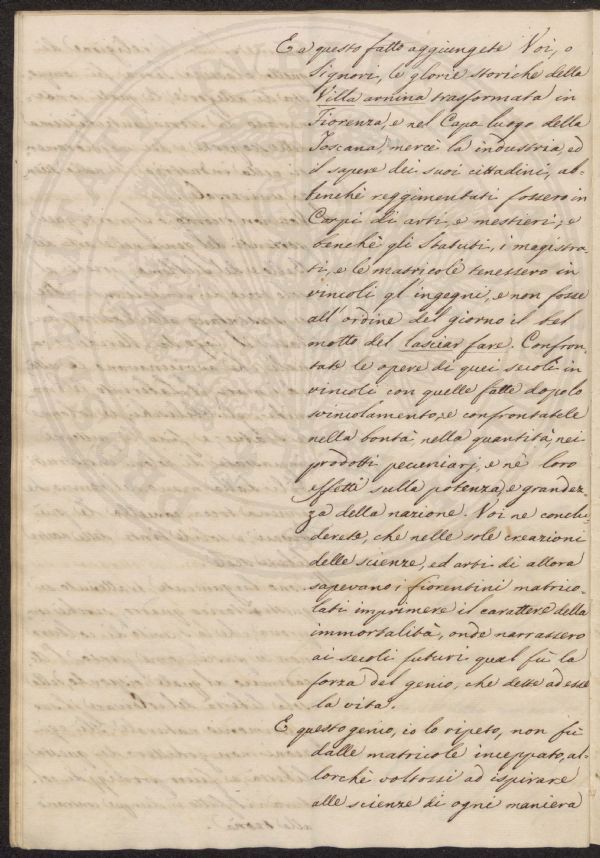 E a questo fatto aggiungete Voi, o
Signori, le glorie storiche della
Villa arnina trasformata in
Fiorenza, e nel Capo luogo della
Toscana, mercè la industria, ed
il sapere dei suoi cittadini, ab-
benchè reggimentati fossero in
Corpi di arti, e mestieri; e
benchè gli Statuti, i magistra-
ti, e le matricole tenessero in
vincoli gl'ingegni, e non fosse
all'ordine del giorno il bel
motto del lasciar fare. Confron-
tate le opere di quei secoli in
vincoli con quelle fatte dopo lo
svincolamento, e confrontatele
nella bontà, nella quantità, nei
prodotti pecuniarj, e nè loro
effetti sulla potenza, e grandez-
za della nazione. Voi ne conclu-
derete, che nelle sole creazioni
delle scienze, ed arti di allora
sapevano i fiorentini matrico-
lati imprimere il carattere della
immortalità, onde narrassero
ai secoli futuri qual fù la
forza del genio, che dette ad esse
la vita.
E questo genio, io lo ripeto, non fù
dalle matricole inceppato, al-
lorchè voltossi ad ispirare
alle scienze di ogni maniera